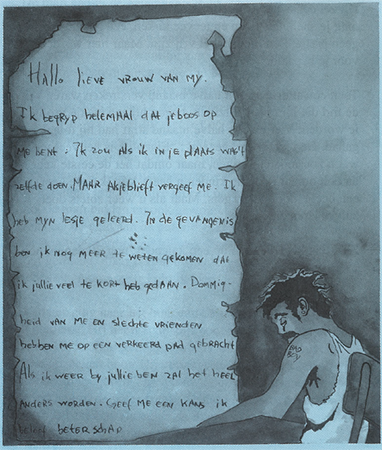 Hallo lieve vrouw van my.
Ik begryp helemaal dat je boos op
me bent. Ik zou als ik in je plaats was 't
zelfde doen. Maar asjeblieft vergeef me. Ik
heb myn lesje geleerd. In de gevangenis
ben ik nog meer te weten gekomen dat
ik jullie veel te kort heb gedaan. Dommig-
heid van me en slechte vrienden
hebben me op een verkeerd pad gebracht
Als ik weer by jullie ben zal het heel
anders worden. Geef me een kans ik
beloof beterschap